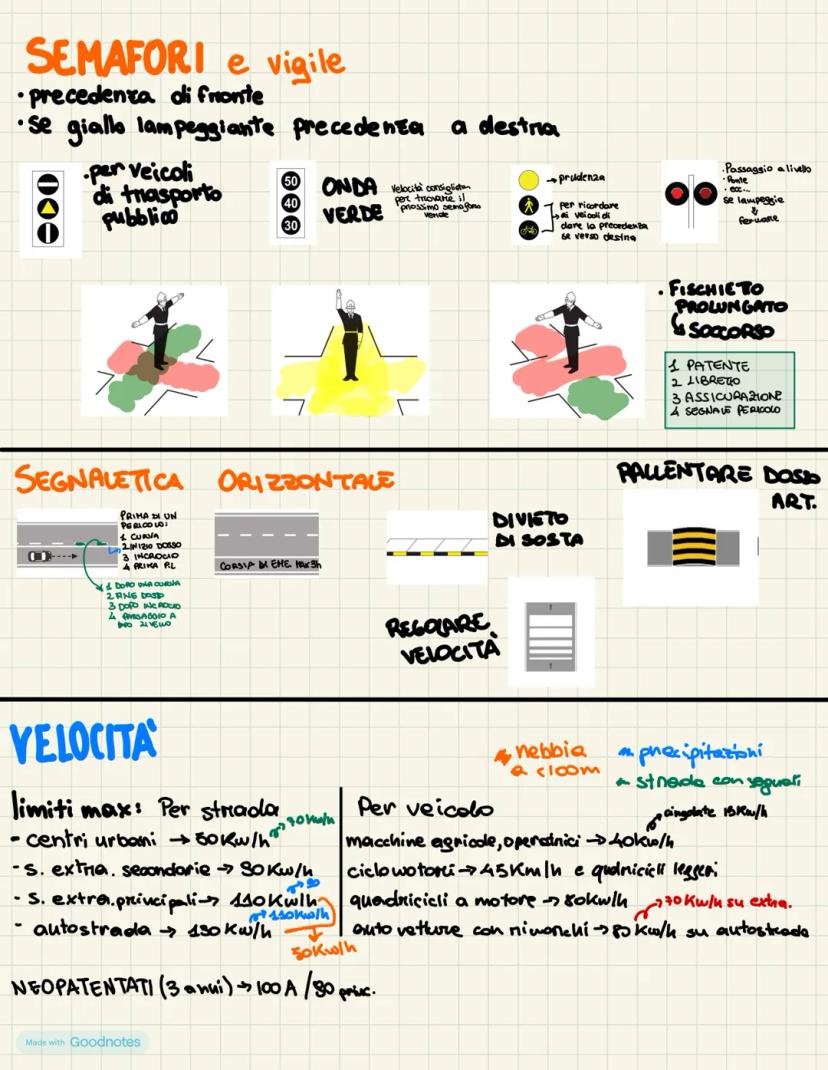 SEMAFORI e vigile
• precedenza di fronte
• se giallo lampeggiante precedenza a destra
• per veicoli
di trasporto
pubblico
50
40
30
ONDA
VERDE
Velocità consigliata
per trovare il
prossimo semaforo
verde
→ prudenza
per ricordare
ai veicoli di
dare la precedenza
se verso destra
• Passaggio a livello
• Ponte
• ecc...
se lampeggia
fermare
• FISCHIETTO
PROLUNGATO
↳ SOCCORSO
1 PATENTE
2 LIBRETTO
3 ASSICURAZIONE
4 SEGNALE PERICOLO
SEGNALETICA ORIZZONTALE
PRIMA DI UN
PERICOLO:
1 CURVA
2 INIZIO DOSSO
3 INCROCIO
4 PRIMA P.L
1 DOPO UNA CURVA
2 FINE DOSSO
3 DOPO INCROCIO
4 PASSAGGIO A
LIVELLO
CORSIA DI EME
DIVIETO
DI SOSTA
RALLENTARE DOSSO
ART.
REGOLARE
VELOCITÀ
VELOCITÀ
nebbia
a <100m
precipitazioni
strada con segnali
limiti max: Per strada
- centri urbani → 50 Km/h → 70 Km/h
- s. extra. secondarie → 90 Km/h
- s. extra. principali → 110 Km/h → 90
- autostrada → 130 Km/h → 110 Km/h
50 Km/h
Per veicolo
macchine agricole, operatrici → 40 Km/h → cingolate 15 Km/h
ciclomotori → 45 Km/h e quadricicli leggeri
quadricicli a motore → 80 Km/h
auto vetture con rimorchi → 80 Km/h su autostrada → 70 Km/h su extra.
NEOPATENTATI (3 anni) → 100 A / 90 princ.
Made with Goodnotes